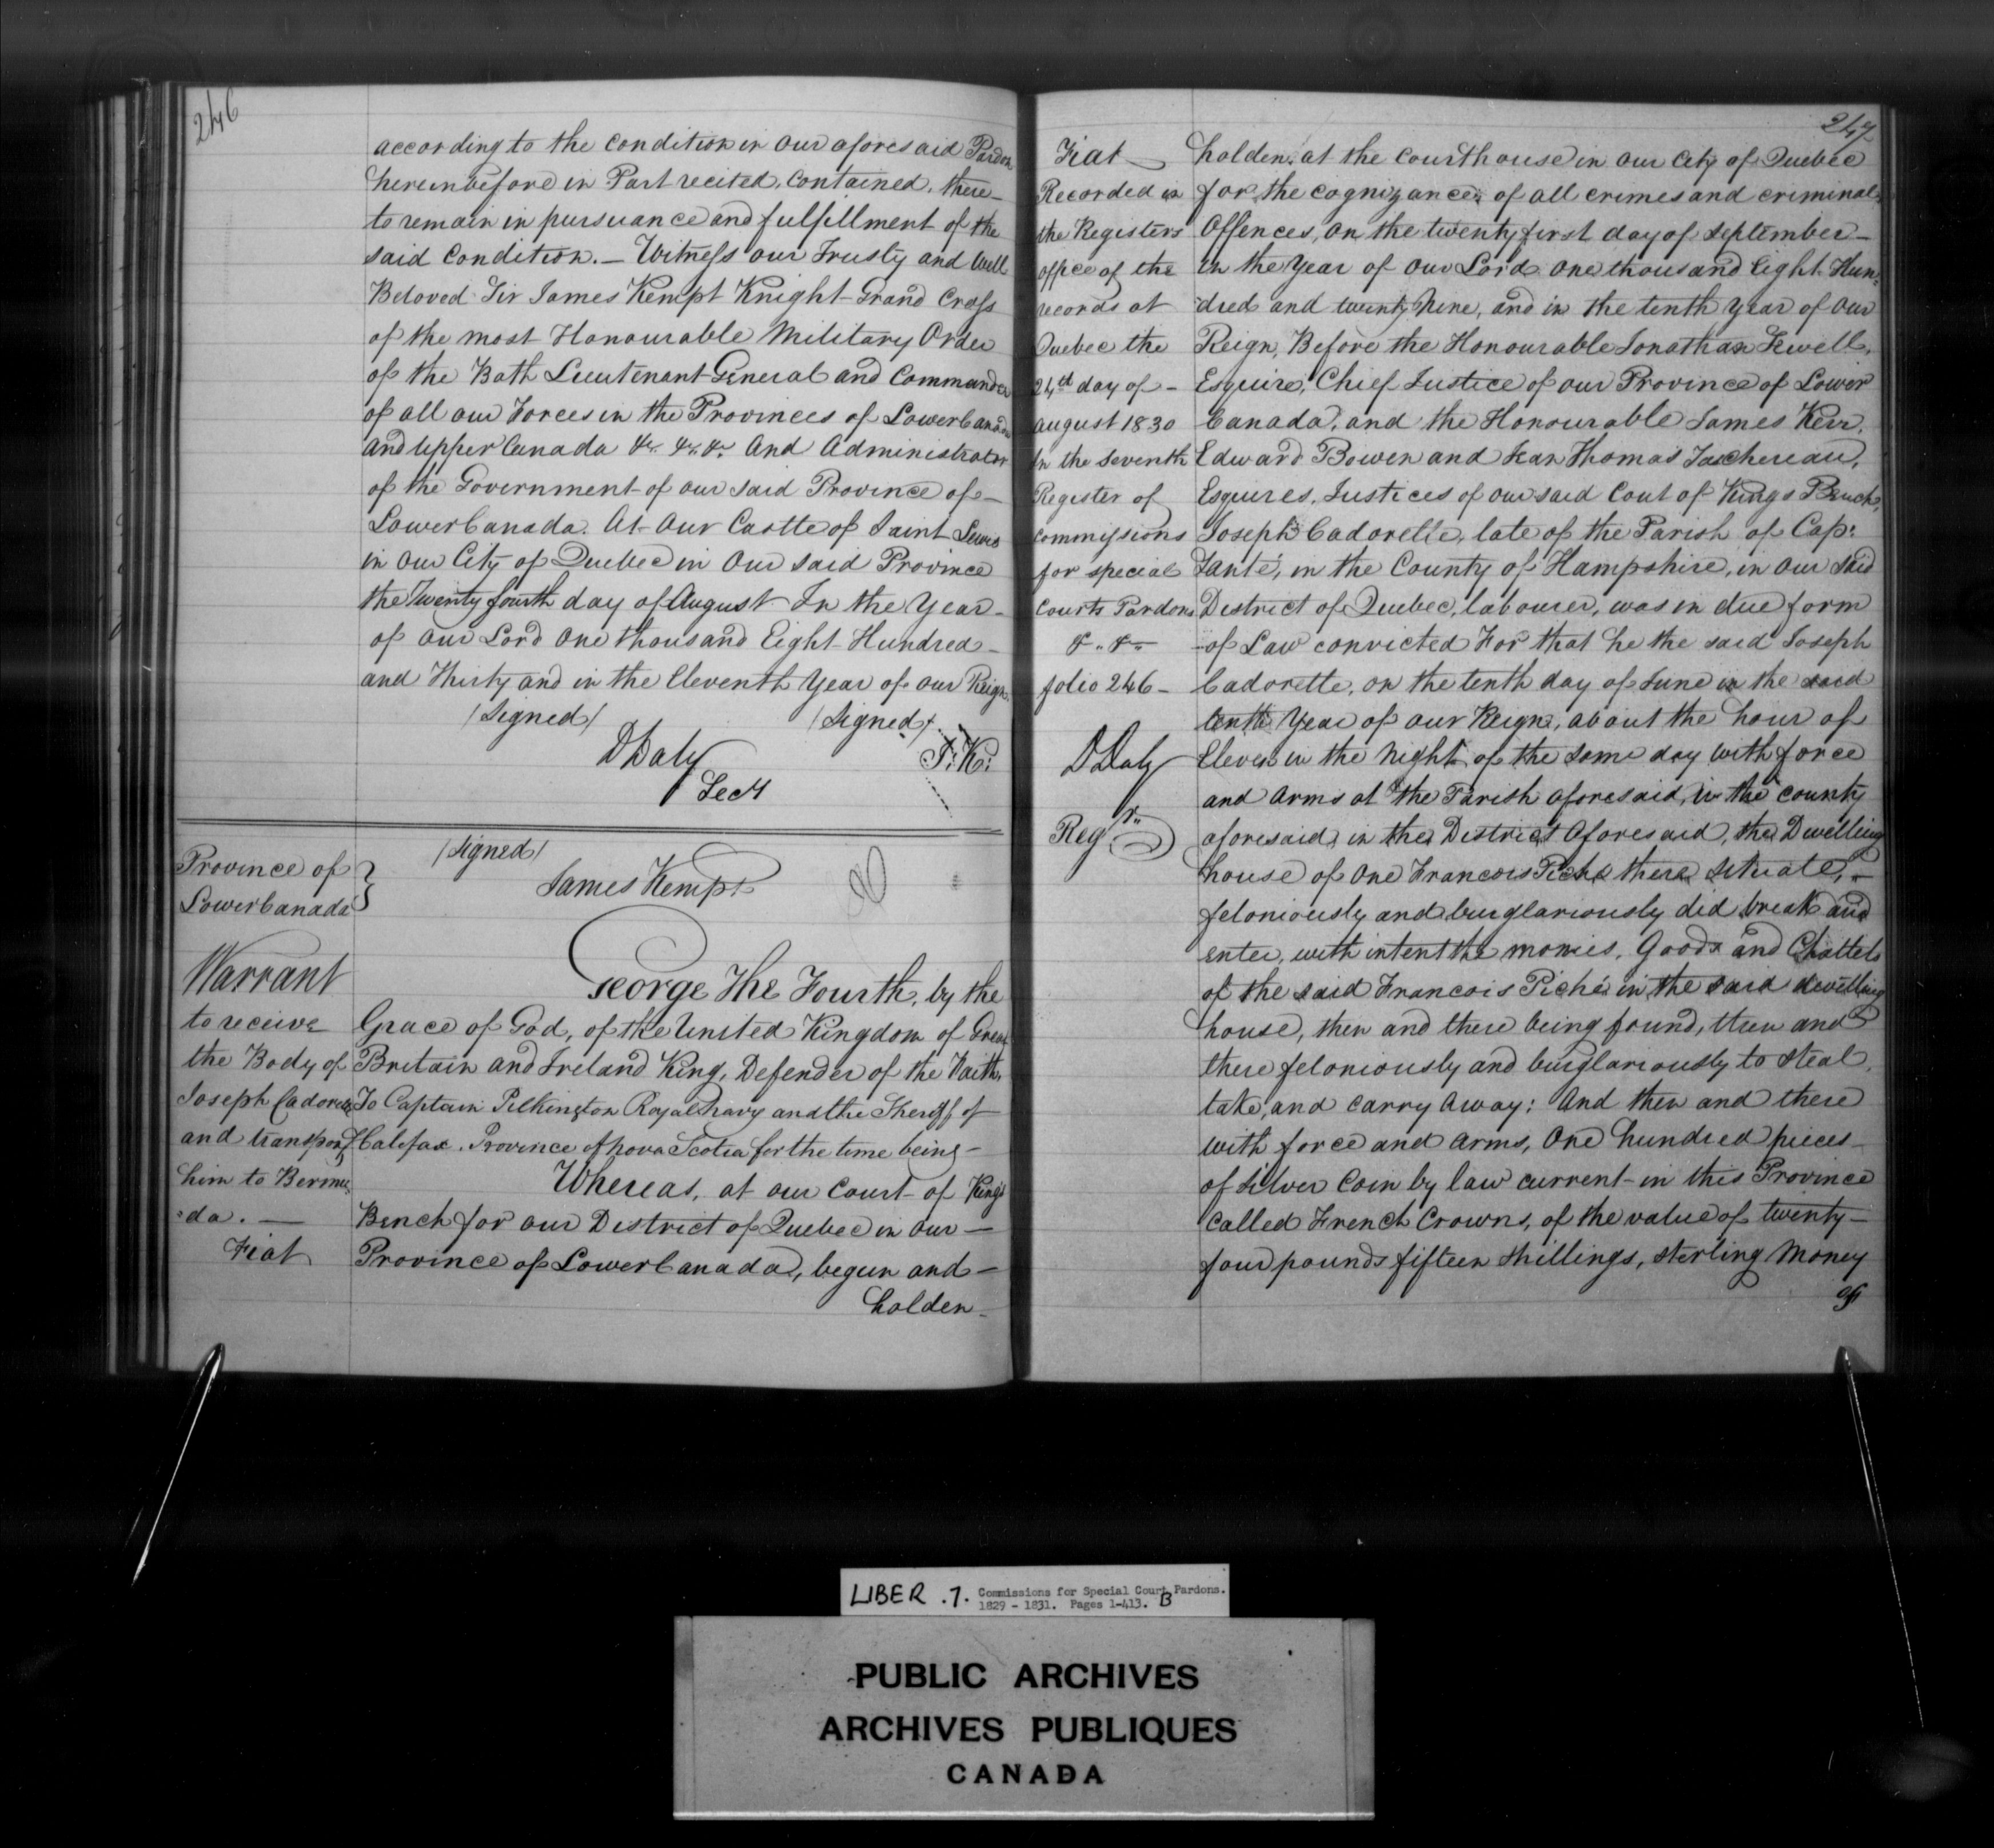 246
according to the Condition in our aforesaid Pardon
hereinbefore in Part recited, Contained, there-
to remain in pursuance and fulfillment of the
said Condition. — Witness our Trusty and Well
Beloved Sir James Kempt Knight Grand Cross
of the most Honourable Military Order
of the Bath Lieutenant General and Commander
of all our Forces in the Provinces of Lower Canada
and Upper Canada &c. &c. &c. And Administrator
of the Government of our said Province of —
Lower Canada. At Our Castle of Saint Lewis
in our City of Quebec in Our said Province
the Twenty fourth day of August In the Year —
of our Lord One thousand Eight Hundred —
and Thirty and in the Eleventh Year of our Reign.
/Signed/ /Signed/
D Daly J: K:
Secy
Province of }
Lower Canada
/Signed/
James Kempt
Warrant
to receive
the Body of
Joseph Cadorette
and transport
him to Bermu
:da. —
Fiat
George The Fourth, by the
Grace of God, of the United Kingdom of Great
Britain and Ireland King, Defender of the Faith.
To Captain Pilkington Royal Navy and the Sheriff of
Halifax. Province of Nova Scotia for the time being —
Whereas, at our Court of King's
Bench for our District of Quebec in our —
Province of Lower Canada, begun and —
holden —
247
Fiat —
Recorded in
the Registers
office of the
records at
Quebec the
24th day of —
August 1830
In the seventh
Register of
Commissions
for special
Courts Pardons
&.. &..
folio 246 —
D Daly
Regr.
holden at the Courthouse in our City of Quebec
for the cognizance of all crimes and criminal
Offences, on the twenty first day of September —
in the Year of Our Lord One thousand Eight Hun:
:dred and twenty Nine, and in the tenth Year of our
Reign, Before the Honourable Jonathan Sewell,
Esquire, Chief Justice of our Province of Lower
Canada, and the Honourable James Kerr,
Edward Bowen and Jean Thomas Taschereau,
Esquires, Justices of our said Cout of Kings Bench,
Joseph Cadorette, late of the Parish of Cap:
Santé, in the County of Hampshire, in our said
District of Quebec, labourer, was in due form
of Law convicted For that he the said Joseph
Cadorette, on the tenth day of June in the said
tenth Year of our Reign, about the hour of
Eleven in the Night of the same day with force
and Arms at the Parish aforesaid, in the County
aforesaid, in the District Aforesaid, the Dwelling
house of One Francois Piché there situate, —
feloniously and burglariously did break and
enter, with intent the monies, Goods and Chattels
of the said Francois Piché in the said dwelling
house, then and there being found, then and
there feloniously and burglariously to steal,
take, and carry Away: And then and there
with force and Arms, One hundred pieces —
of Silver Coin by law current in this Province
Called French Crowns, of the value of twenty —
four pounds fifteen shillings, sterling Money
of
LIBER .7. Commissions for Special Court Pardons.
1829 - 1831. Pages 1-413. B
PUBLIC ARCHIVES
ARCHIVES PUBLIQUES
CANADA